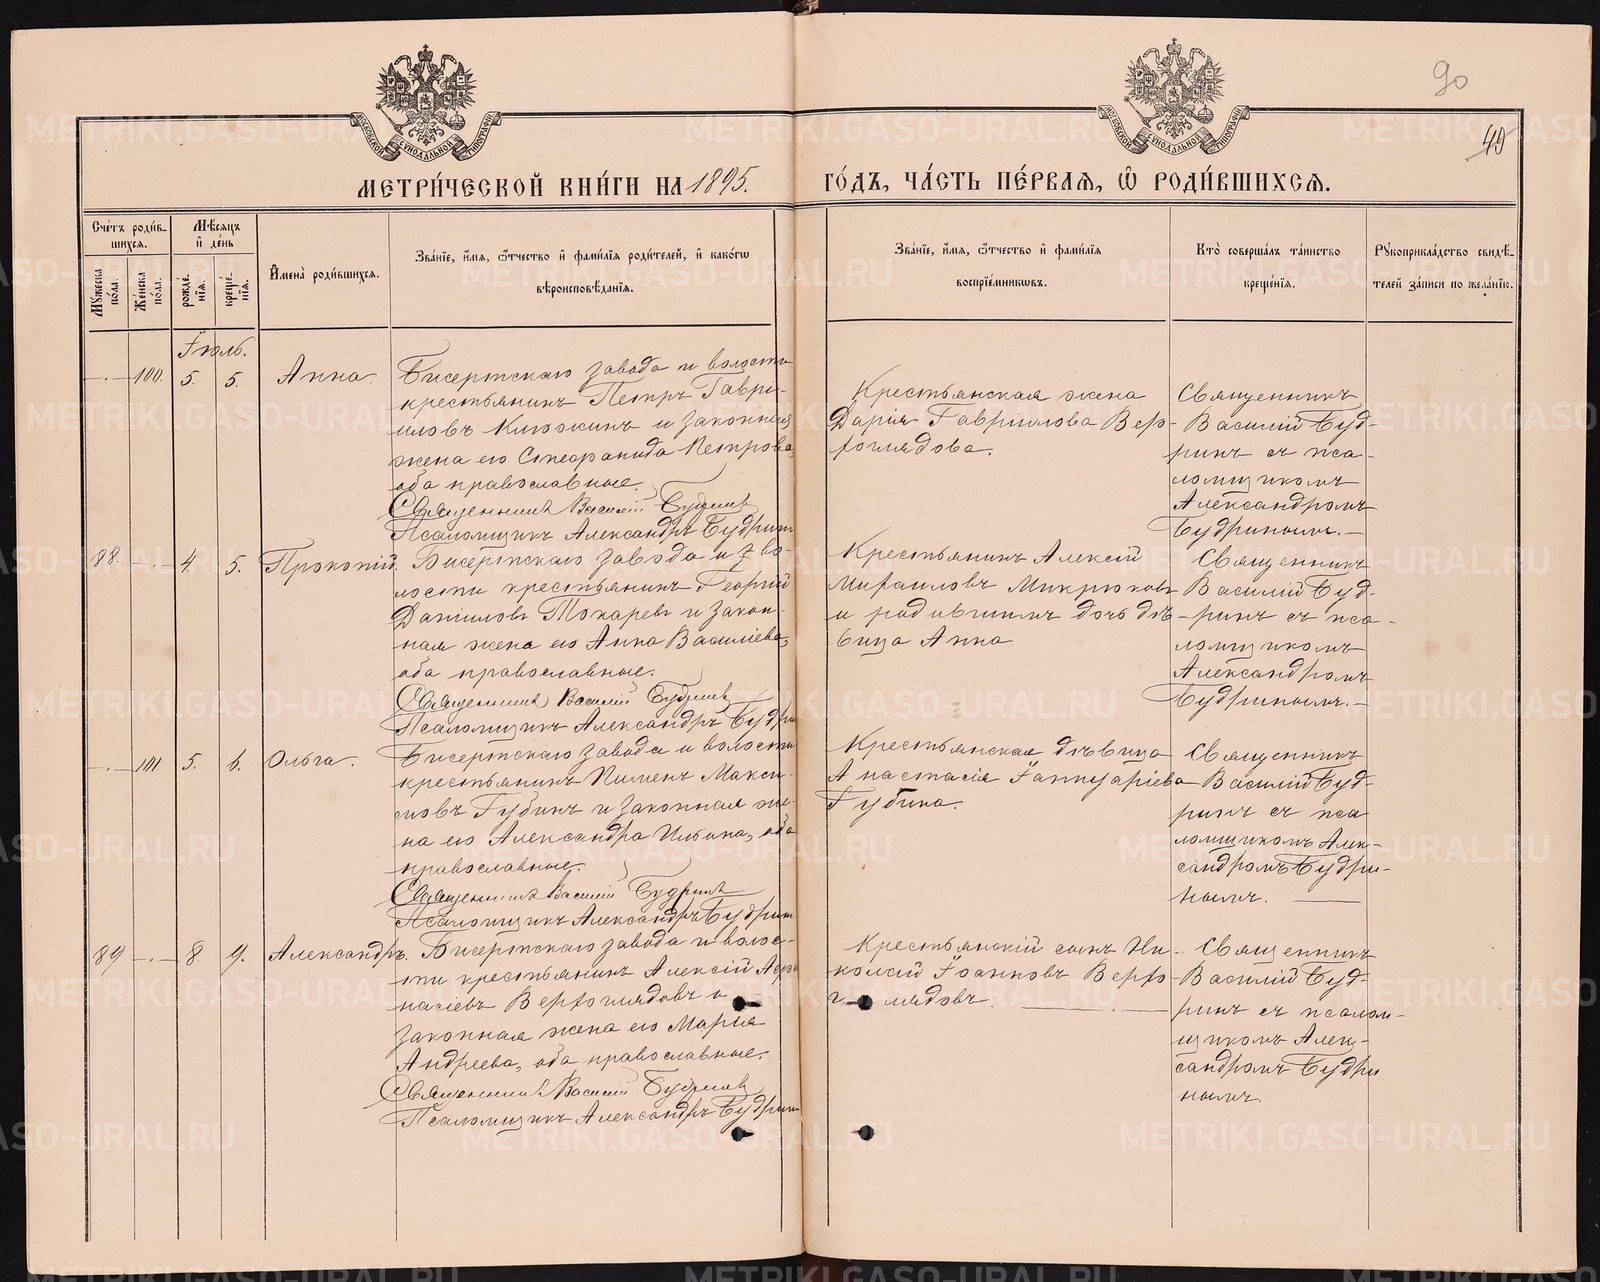 90
49
МЕТРИ́ЧЕСКОЙ КНИ́ГИ НА 1895. ГО́ДЪ, ЧА́СТЬ ПЕ́РВАЯ, Ѡ РОДИ́ВШИХСЯ.
Сче́тъ роди́в-
шихся.
Му́жеска по́ла.
Же́нска по́ла.
Мѣ́сяцъ и де́нь
рожде́нія.
креще́нія.
И҆мена̀ роди́вшихся.
Зва́нїе, и҆́мя, ѻ҆́тчество и҆ фами́лїя роди́телей, и҆ како́гѡ
вѣроисповѣ́данїя.
Зва́нїе, и҆́мя, ѻ҆́тчество и҆ фами́лїя
воспрїе́мникѡвъ.
Кто̀ соверша́лъ та́инство
креще́нїя.
Рꙋкоприкла́дство свидѣ́-
телей за́писи по жела́нїю.
Іюль.
100. 5. 5. Анна.
Бисертскаго завода и волости
крестьянинъ Петръ Гаври-
иловъ Клюкинъ и законная
жена его Стефанида Петрова,
оба православные.
Священникъ Василій Будринъ
Псаломщикъ Александръ Будринъ
Крестьянская жена
Дарія Гавриилова Вер-
хоглядова.
Священникъ
Василій Буд-
ринъ съ пса-
ломщикомъ
Александромъ
Будринымъ.
88. 4. 5. Прокопій.
Бисертскаго завода и во-
лости крестьянинъ Георгій
Даниловъ Токаревъ и закон-
ная жена его Анна Василіева,
оба православные.
Священникъ Василій Будринъ
Псаломщикъ Александръ Будринъ
Крестьянинъ Алексій
Михаиловъ Микрюковъ
и дочь дѣ-
вица Анна
Священникъ
Василій Буд-
ринъ съ пса-
ломщикомъ
Александромъ
Будринымъ.
101 5. 6. Ольга.
Бисертскаго завода и волости
крестьянинъ Пименъ Макси-
мовъ Губинъ и законная же-
на его Александра Ильина, оба
православные.
Священникъ Василій Будринъ
Псаломщикъ Александръ Будринъ
Крестьянская дѣвица
Анастасія Іаннуаріева
Губина.
Священникъ
Василій Буд-
ринъ съ пса
ломщикомъ Алек-
сандромъ Будри-
нымъ.
89 8. 9. Александръ.
Бисертскаго завода и волос-
ти крестьянинъ Алексій Афа
насіевъ Верхоглядовъ и
законная жена его Марія
Андреева, оба православные.
Священникъ Василій Будринъ
Псаломщикъ Александръ Будринъ
Крестьянскій сынъ Ни-
колай Іоанновъ Верхо-
глядовъ.
Священникъ
Василій Буд-
ринъ съ псалом-
щикомъ Алек-
сандромъ Будри
нымъ.
METRIKI.GASO-URAL.RU